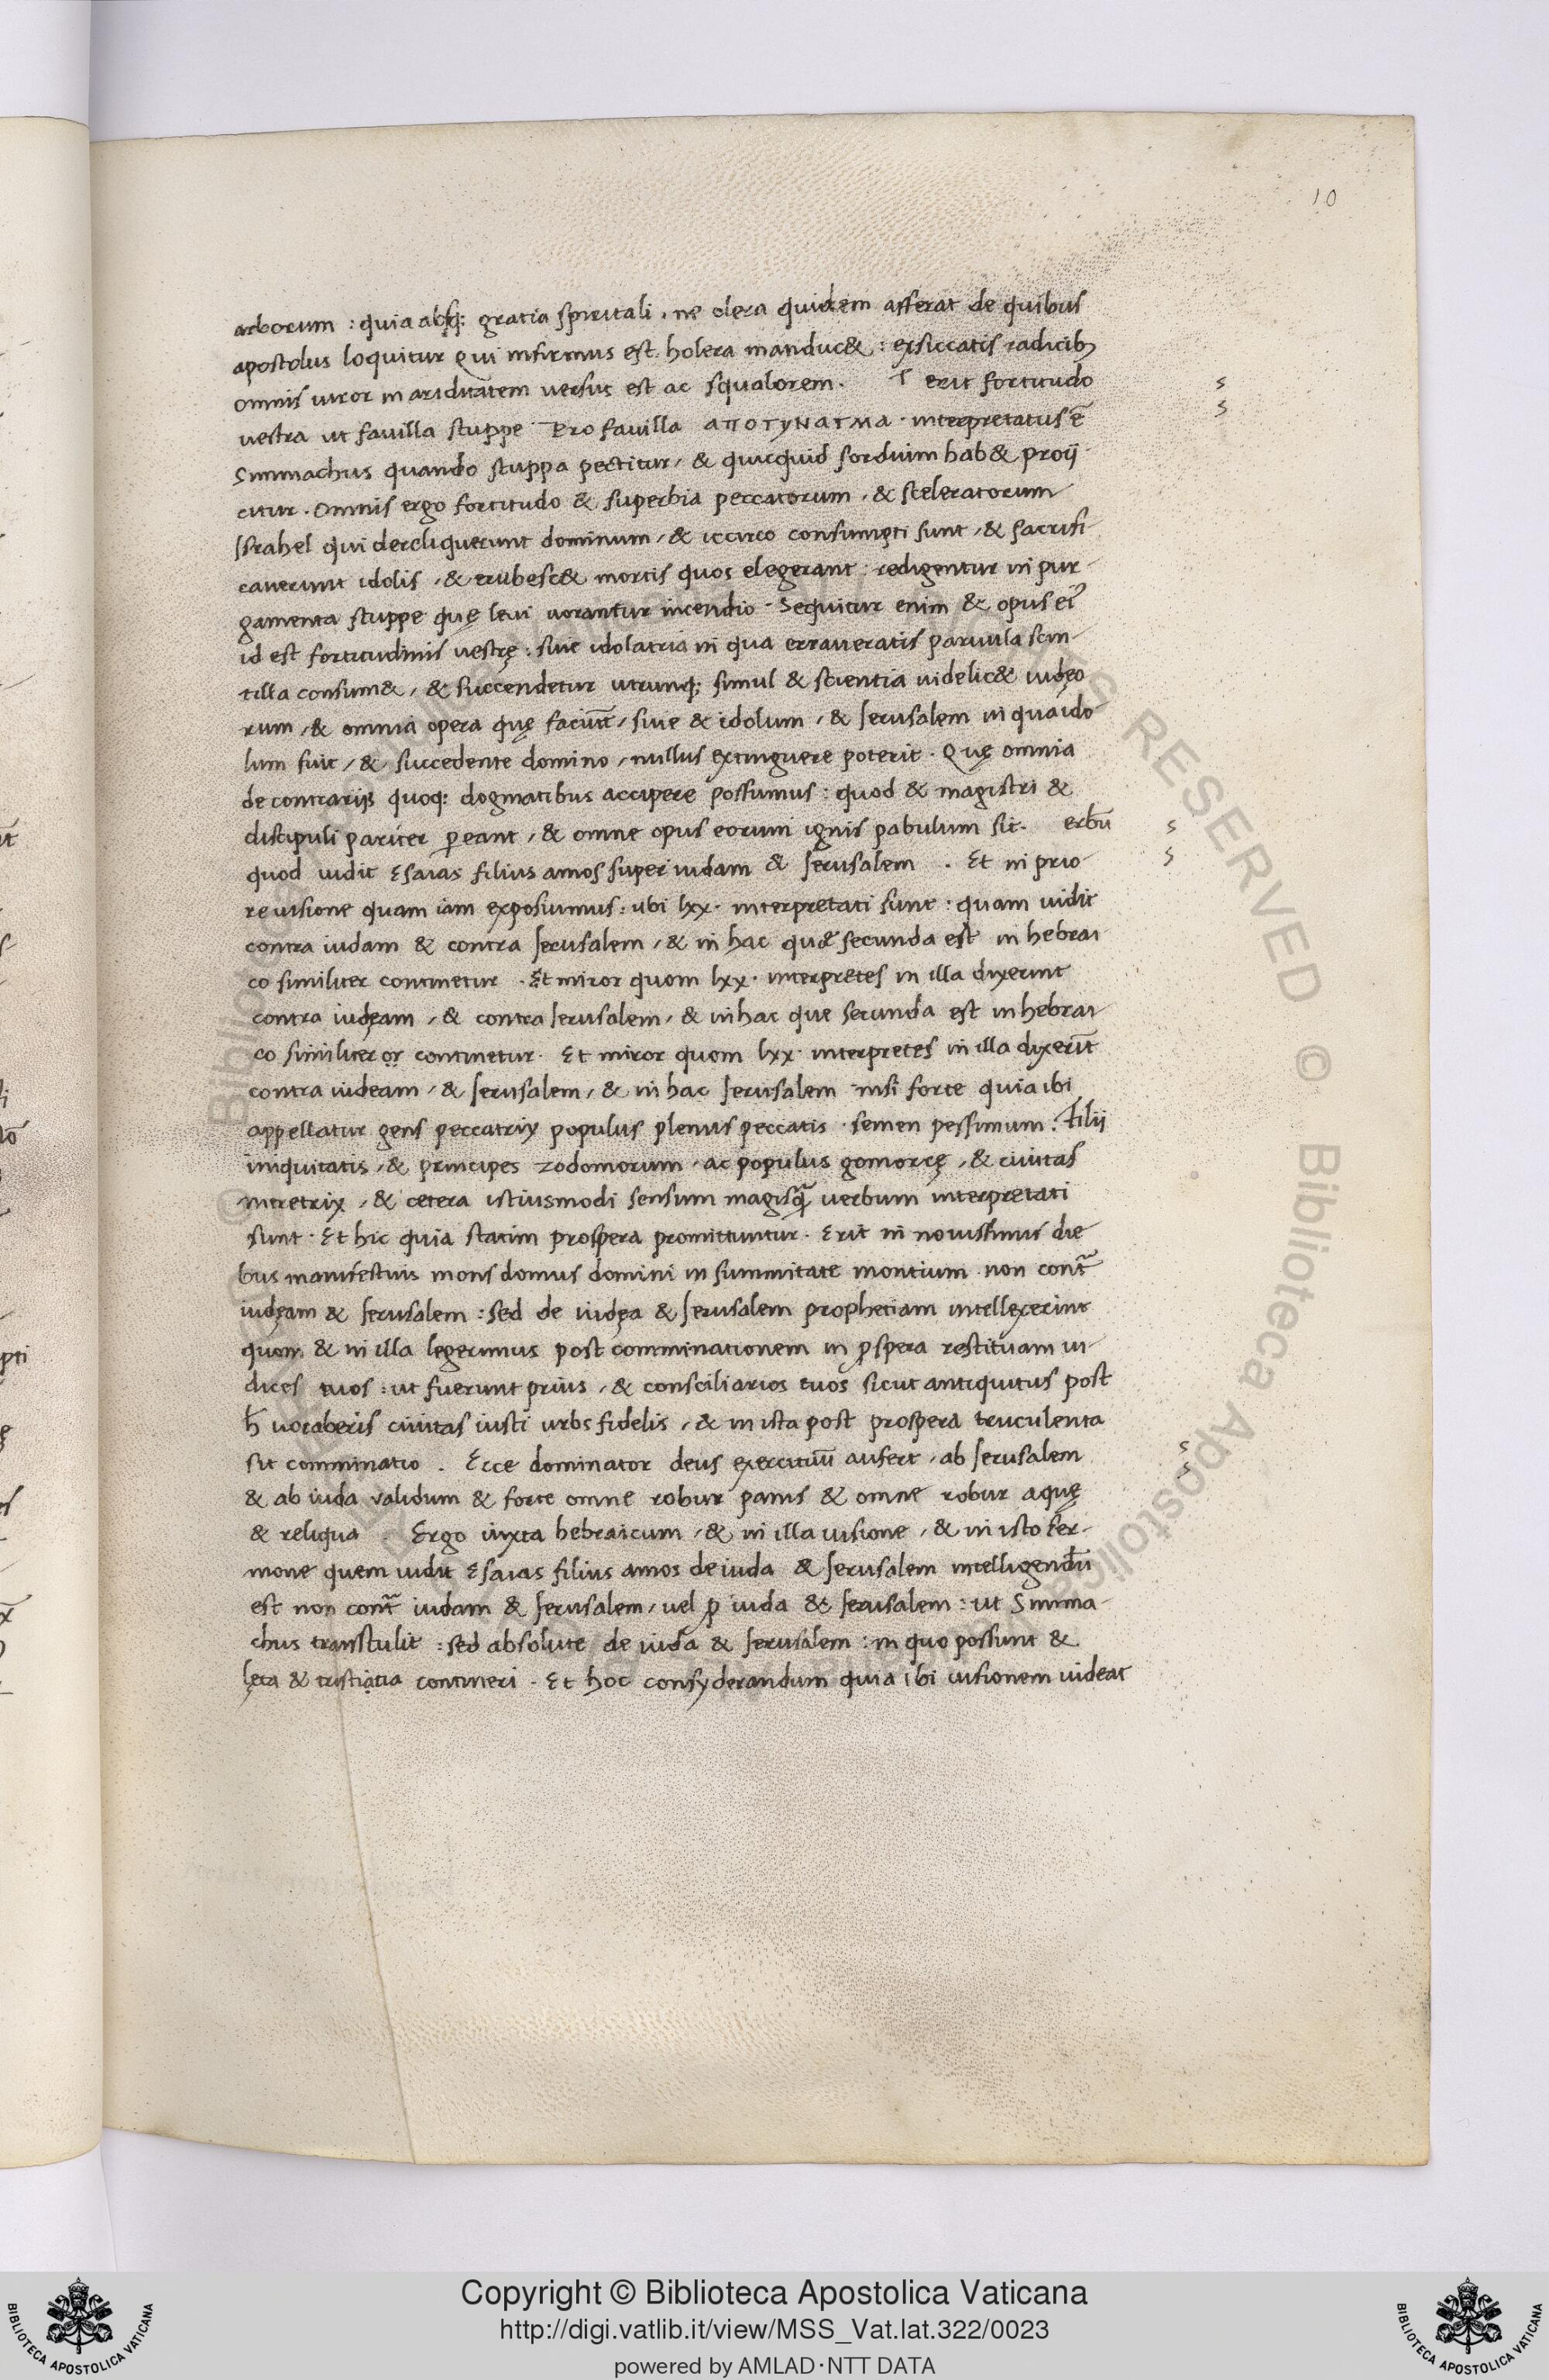 10
arborum : quia absq; gratia spiritali . ne olera quidem afferat de quibus
apostolus loquitur Qui infirmus est . holera manduc& : exsiccatis radicib;
omnis viror in ariditatem versus est ac squalorem . T erit fortitudo
vestra ut favilla stuppe Pro favilla αποτγναγμα . interpretatus ē
Simmachus quando stuppa pectitur / & quicquid sordium hab& proij-
citur . Omnis ergo fortitudo & superbia peccatorum / & sceleratorum
Israhel qui dereliquerunt dominum / & iccirco consumpti sunt / & sacrifi
caverunt idolis / & erubesc& mortis quos elegerant : redigentur in pur-
gamenta stuppe quę levi vorantur incendio . Sequitur enim & opus ei᾽
id est fortitudinis vestrę : sive idolatria in qua erraveratis parvula scin-
tilla consum& / & succendetur utrunq; simul & scientia videlic& iudęo
rum / & omnia opera quę faciūt / sive & idolum / & Ierusalem in qua ido
lum fuit / & succedente domino / nullus extinguere poterit . Quę omnia
de contrarijs quoq; dogmatibus accipere possumus : quod & magistri &
discipuli pariter ꝑeant / & omne opus eorum ignis pabulum sit . erbū
quod vidit Esaias filius amos super iudam & Ierusalem . Et in prio-
re visione quam iam exposuimus : ubi lxx . interpretati sunt : quam vidit
contra iudam & contra Ierusalem / & in hac quæ secunda est in hebrai
co similiter continetur . Et miror quom lxx . interpretes in illa dixerint
contra iudęam / & contra Ierusalem / & in hac que secunda est in hebrai
co similiter or continetur . Et miror quom lxx . interpretes in illa dixerīt
contra iudeam / & Ierusalem / & in hac Ierusalem nisi forte quia ibi
appellatur gens peccatrix populus plenus peccatis . semen pessimum . Filii
iniquitatis / & principes zodomorum . ac populus gomorrę / & civitas
mretrix / & cetera istiusmodi sensum magisq̃ verbum interpretati
sunt . Et hic quia statim prospera promittuntur . Erit in novissimis die
bus manifestus mons domus domini in summitate montium non contᷓ
iudęam & Ierusalem : sed de iudęa & Ierusalem prophetiam intellexerint
quom & in illa legerimus post comminationem in ꝓspera restituam iu-
dices tuos : ut fuerunt prius / & consciliarios tuos sicut antiquitus post
h̄ vocaberis civitas iusti urbs fidelis / & in ista post prospera truculenta
sit comminatio . Ecce dominator deus exercituū aufert / ab Ierusalem
& ab iuda validum & forte omne robur panis & omne robur aquę
& reliqua . Ergo iuxta hebraicum / & in illa visione / & in isto ser-
mone quem vidit Esaias filius amos de iuda & Ierusalem intelligendū
est non contᷓ iudam & Ierusalem / vel ꝓ iuda & Ierusalem : ut Simma-
chus transtulit : sed absolute de iuda & Ierusalem : in quo possunt &
lęta & tristiatia contineri . Et hoc consyderandum quia ibi visionem videat
Copyright © Biblioteca Apostolica Vaticana
http://digi.vatlib.it/view/MSS_Vat.lat.322/0023
powered by AMLAD·NTT DATA